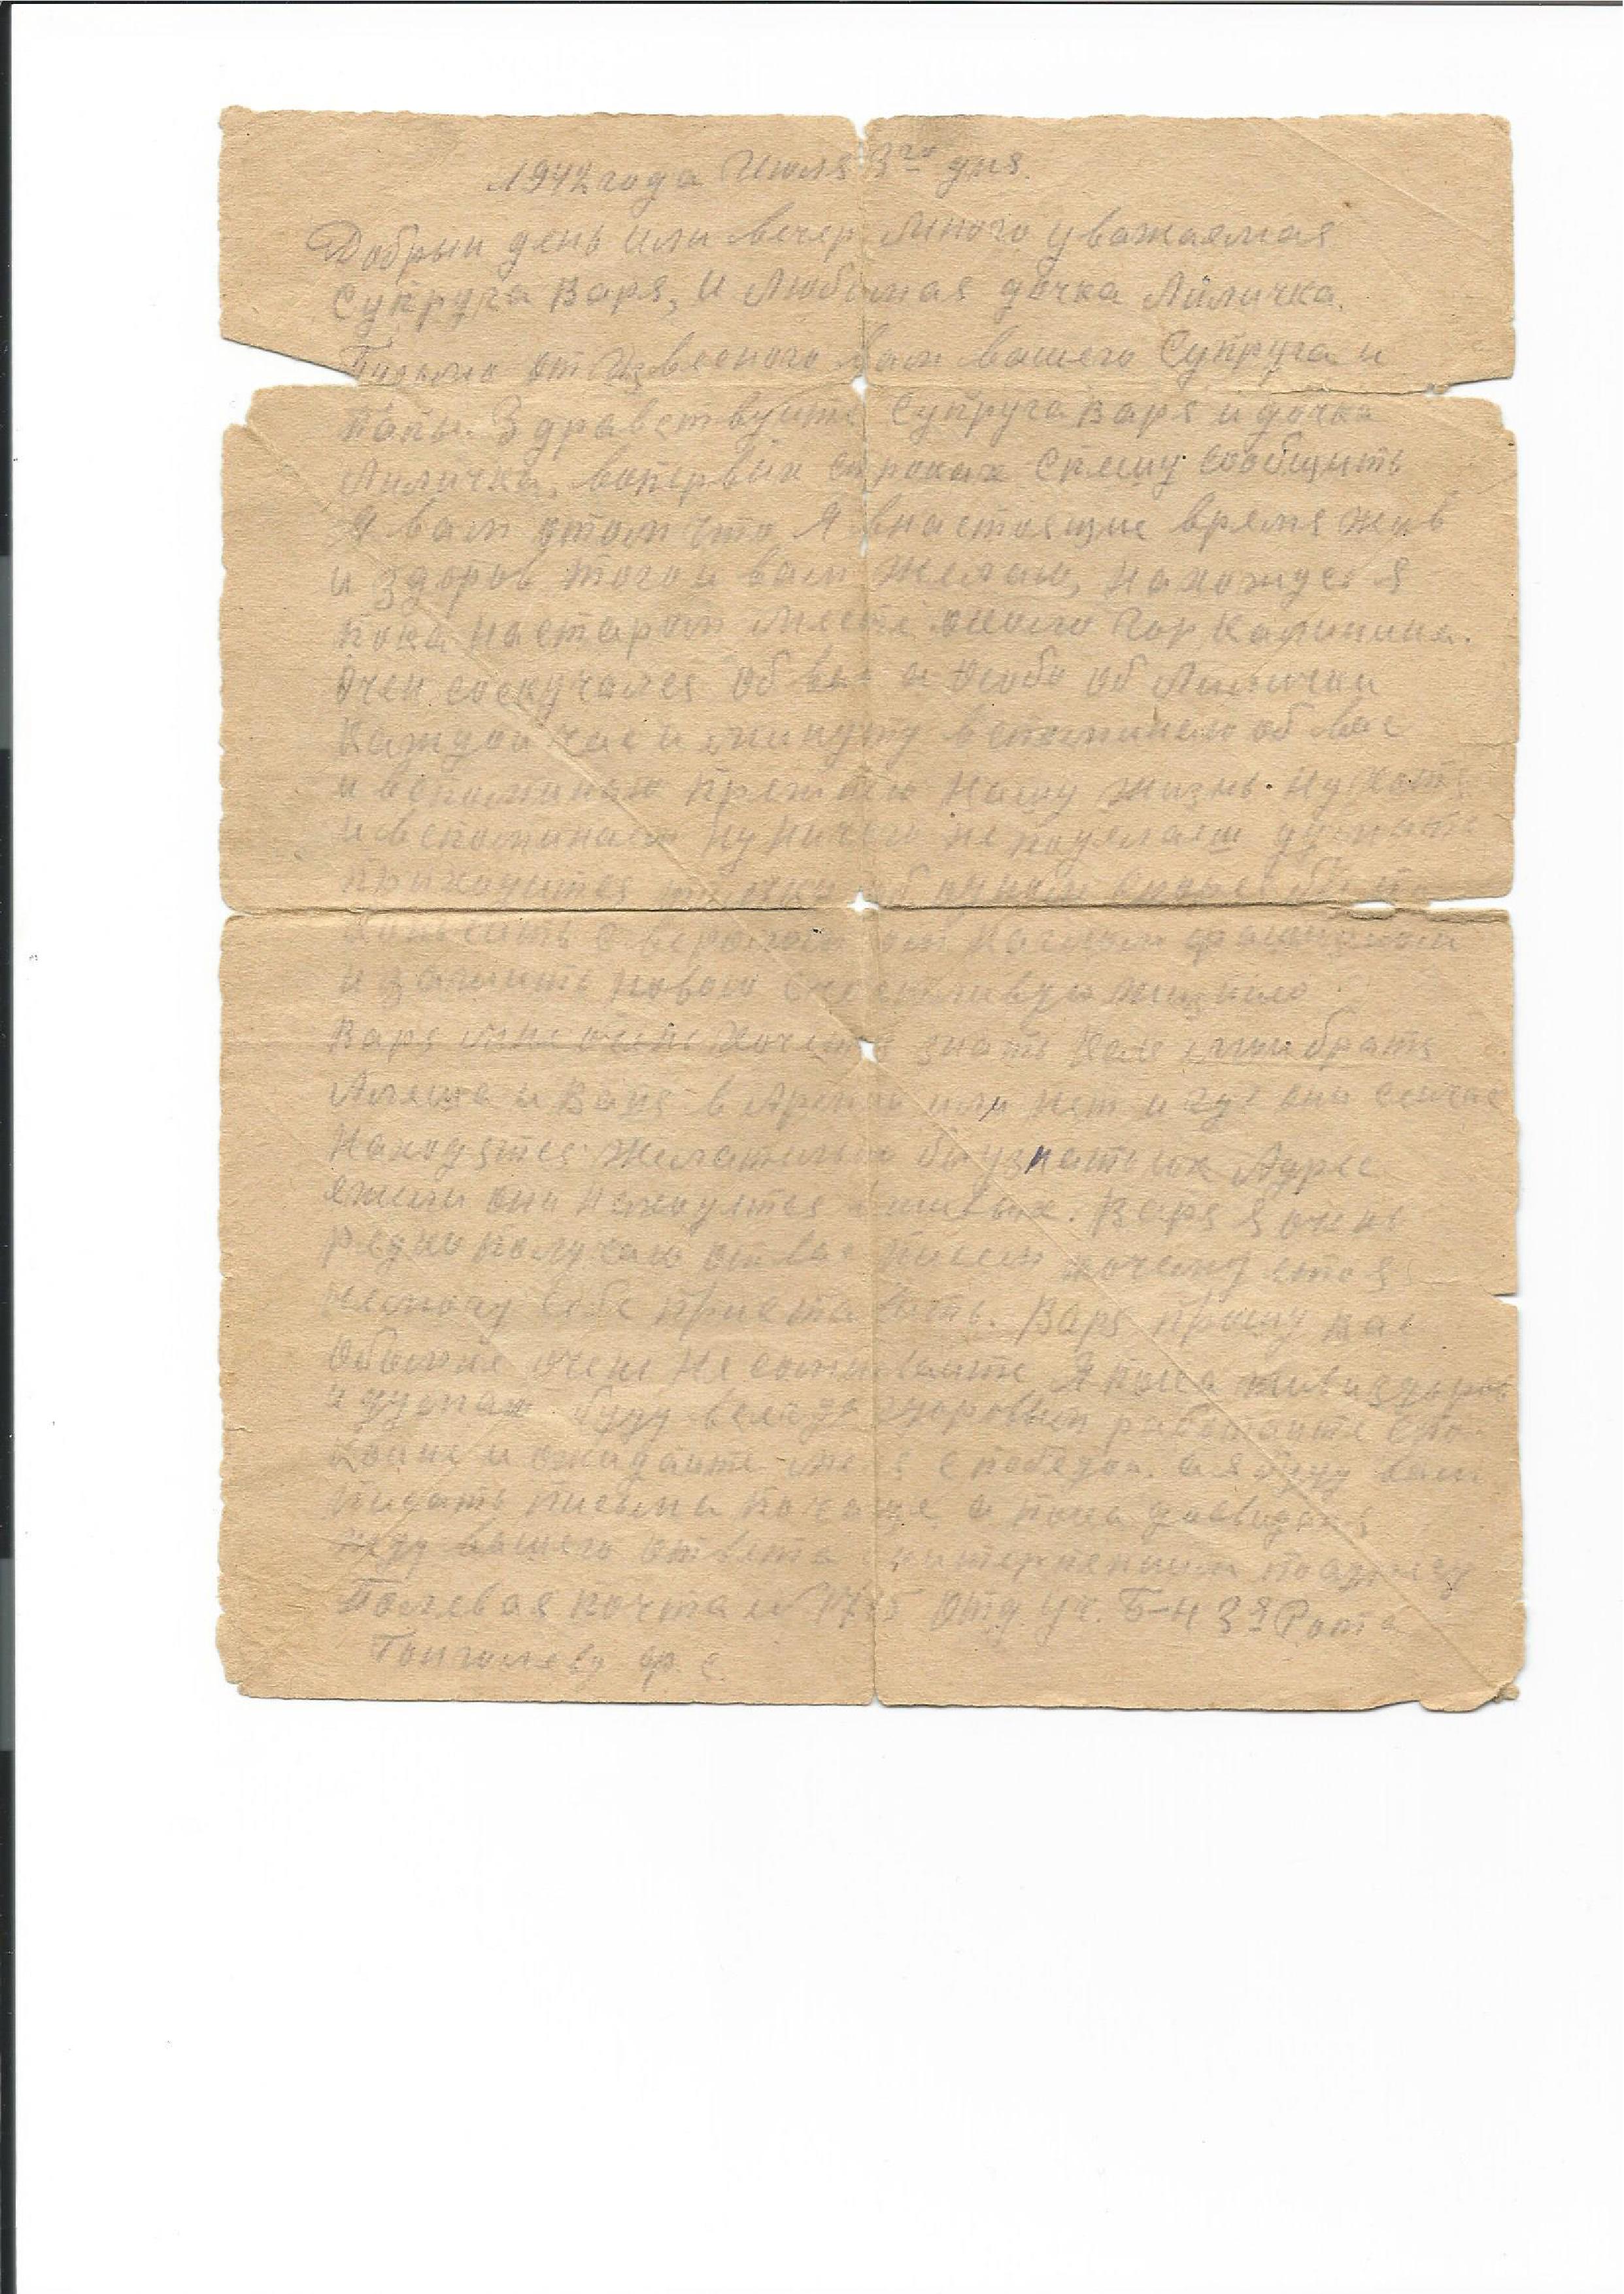 1942 года Июля 3го дня.
Добрыи день или вечер много уважаемая
Супруга Варя, И Любимая дочка Лиличка.
Письмо от Известного вам вашего Супруга и
Папы. Здравствуите Супруга Варя и дочка
Лиличка, вопервых строках Спешу сообщить
Я вам отом что Я внастоящие время жив
и здоров того и вам желаю, нахожусь я
пока настаром месте около Гор Калинина.
Очен соскучался об вас а особо об Лилички
Каждои час и минуту вспоминаю об вас
и вспоминаю прежнею нашу жизнь. Ну хоть
и вспоминаеш ну ничего не поделаеш думать
приходится только об одном скорея бы по
кончить с вероломным фашизмом
и зажить новою счастливую жизнью
Варя мне очень хочется знать братя
Алеша и Ваня в Армии или нет и где они сеичас
находятся желательно бы узнать их Адрес
ежели они находятся вживых. Варя я очень
редко получаю от вас писем почему это я
немогу себе приставить. Варя прошу вас
обомне очень не сомневаите Я пока жив и здоров
и думаю буду всегда здоровым работаите спо-
коине и ожидаите меня с победои. а я буду вам
писать письма почаще а пока досвидания
жду вашего ответа снитерпением
Полевая почта № Отд. уч. Б-н 3я Рота
ф. с.